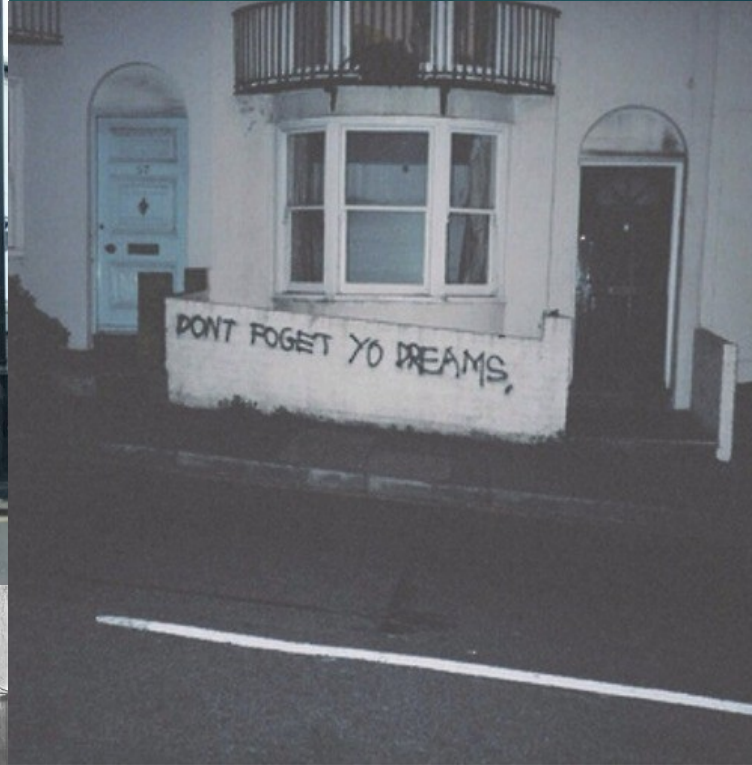 57
DONT FOGET YO DREAMS,